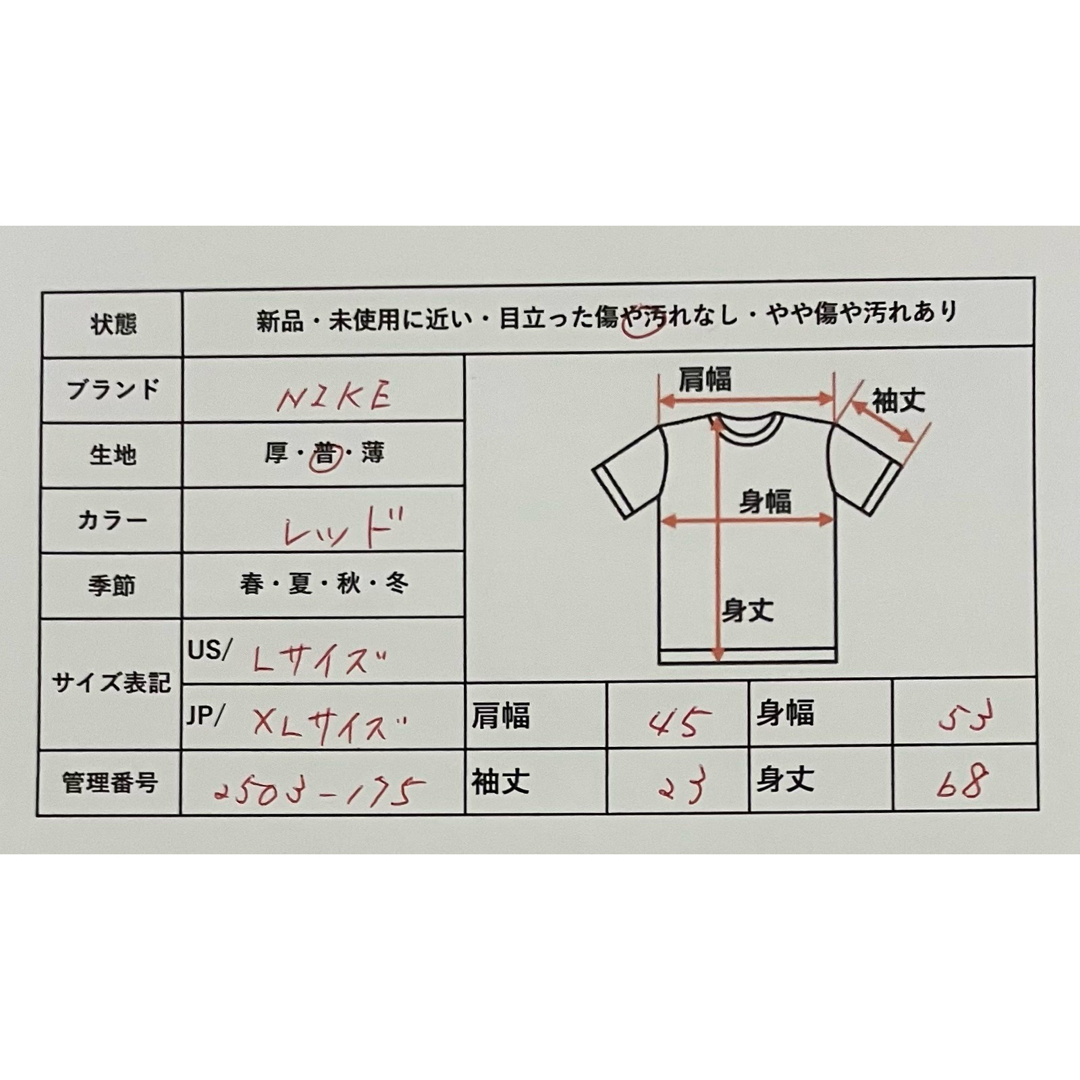 状態 新品・未使用に近い・目立った傷や汚れなし・やや傷や汚れあり
ブランド NIKE
生地 厚・普・薄
カラー レッド
季節 春・夏・秋・冬
サイズ表記 US/ Lサイズ
JP/ XLサイズ
管理番号 2503-175
肩幅
袖丈
身幅
身丈
肩幅 45 身幅 53
袖丈 23 身丈 68